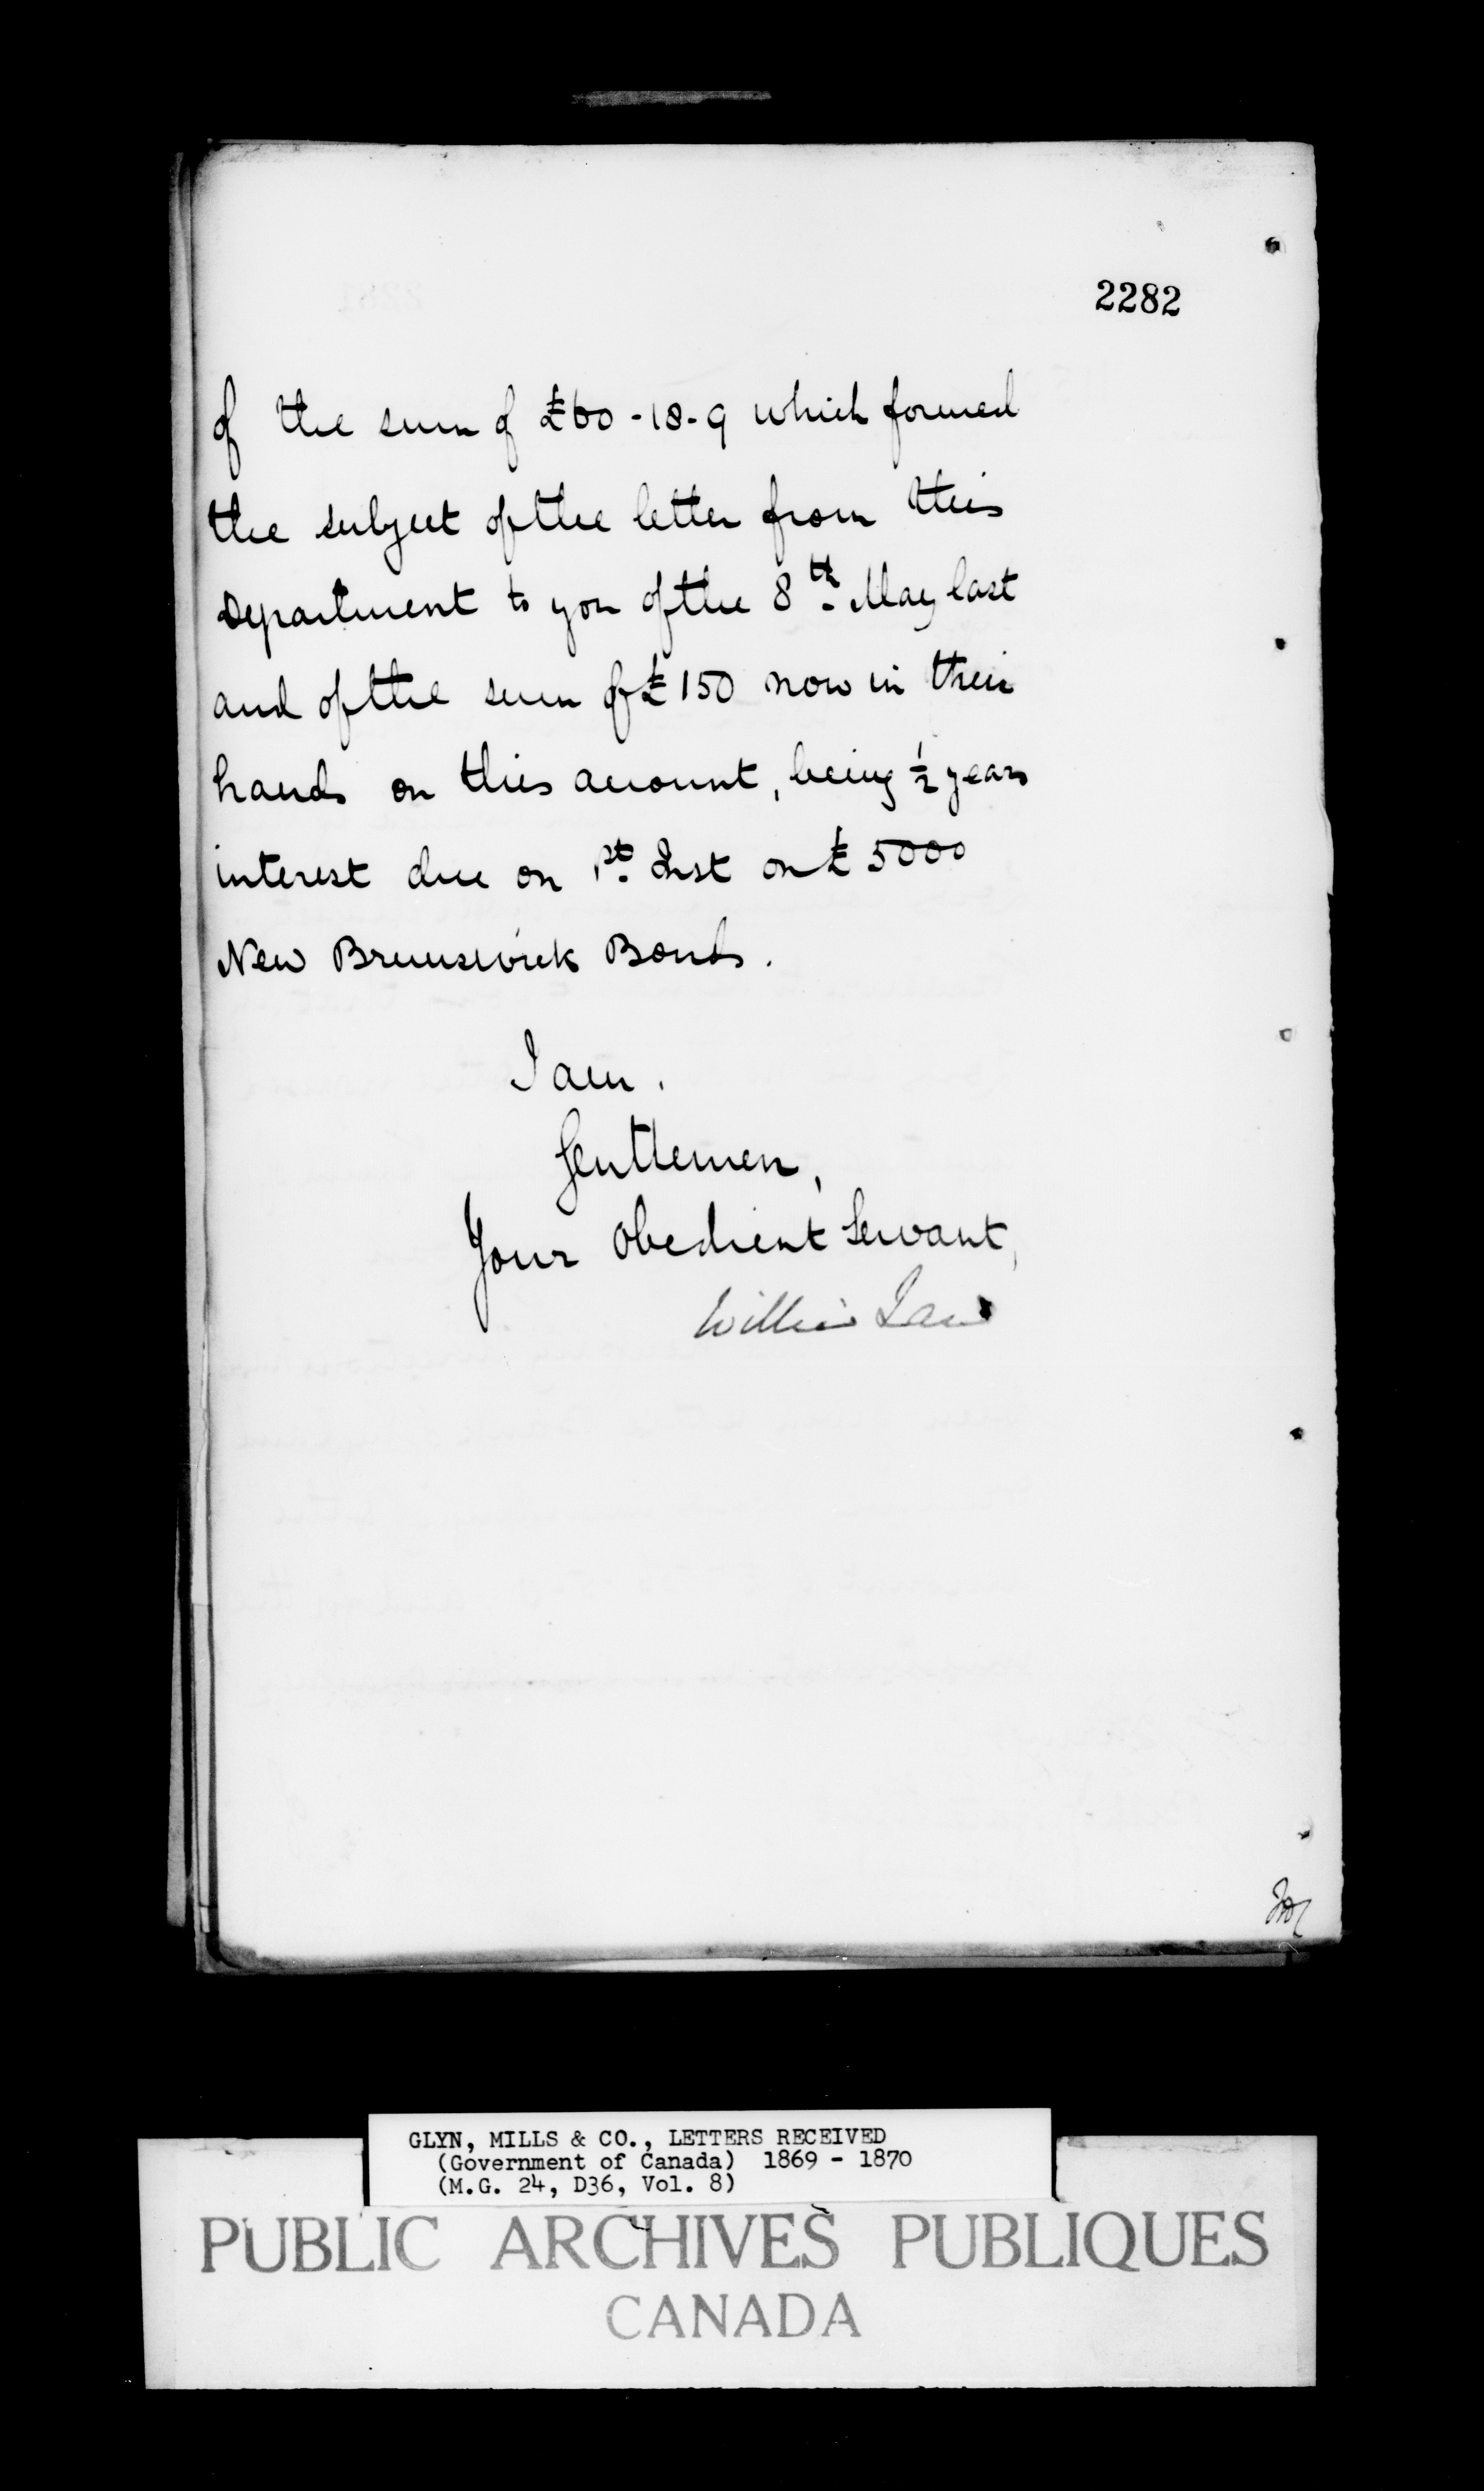 2282
of the sum of £60-18-9 which formed
the subject of the letter from this
Department to you of the 8th May last
and of the sum of £150 now in their
hands on this account, being ½ years
interest due on 1st Inst on £5000
New Brunswick Bonds.
I am,
Gentlemen,
Your Obedient Servant,
GLYN, MILLS & CO., LETTERS RECEIVED
(Government of Canada) 1869 - 1870
(M.G. 24, D36, Vol. 8)
PUBLIC ARCHIVES PUBLIQUES
CANADA